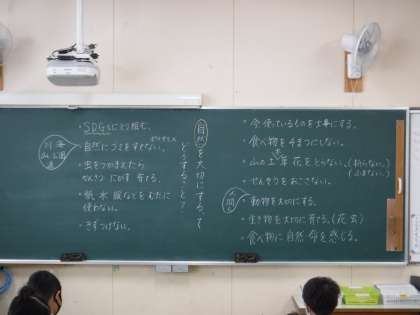 ・SDGsにとり組む。
・自然にゴミをすてない。
ポイすてX
川 海
山 公園
道
・虫をつかまえたら
にがす 育てる
・紙 水 服などをむだに
使わない。
・きずつけない。
自然を大切にするって
どうすること？
・今使っているものを大事にする。
・食べ物をそまつにしない。
・山の土 草 花をとらない。(折らない。)
(ふまない。)
・せんそうをおこさない。
人間
・動物を大切にする。
・生き物を大切に育てる。(花 虫)
・食べ物に自然 命を感じる。